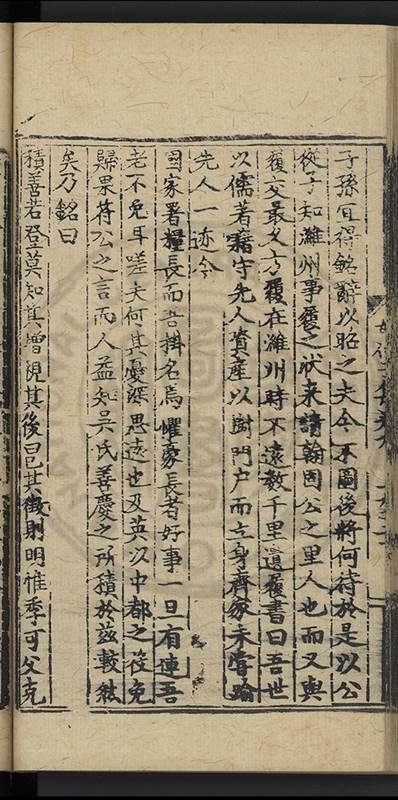 子孫宜得銘辭以昭之夫今不圖後將何待於是以公
從子知濰州事履之狀来請翰固公之里人也而又與
履交最久方履在濰州時不遠数千里遺履書曰吾世
以儒著籍守先人資産以樹門户而立身齊家未嘗踰
先人一迹今
國家署糧長而吾掛名焉懼豪長者好事一旦有連吾
老不免耳嗟夫何其憂深思遠也及英以中都之役免
歸果符公之言而人益知吳氏善慶之所積於兹較然
矣乃銘曰
積善若登莫知其增視其後曰已其徵則明惟季可父克